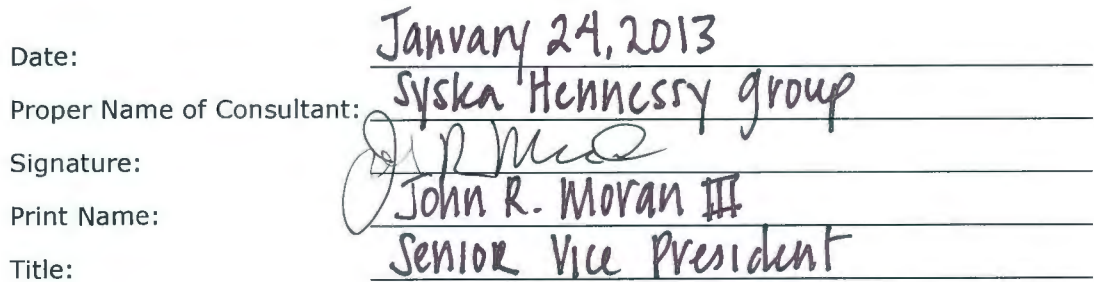 Date: January 24, 2013
Proper Name of Consultant: Syska Hennessy group
Signature:
Print Name: John R. Moran III
Title: Senior Vice President